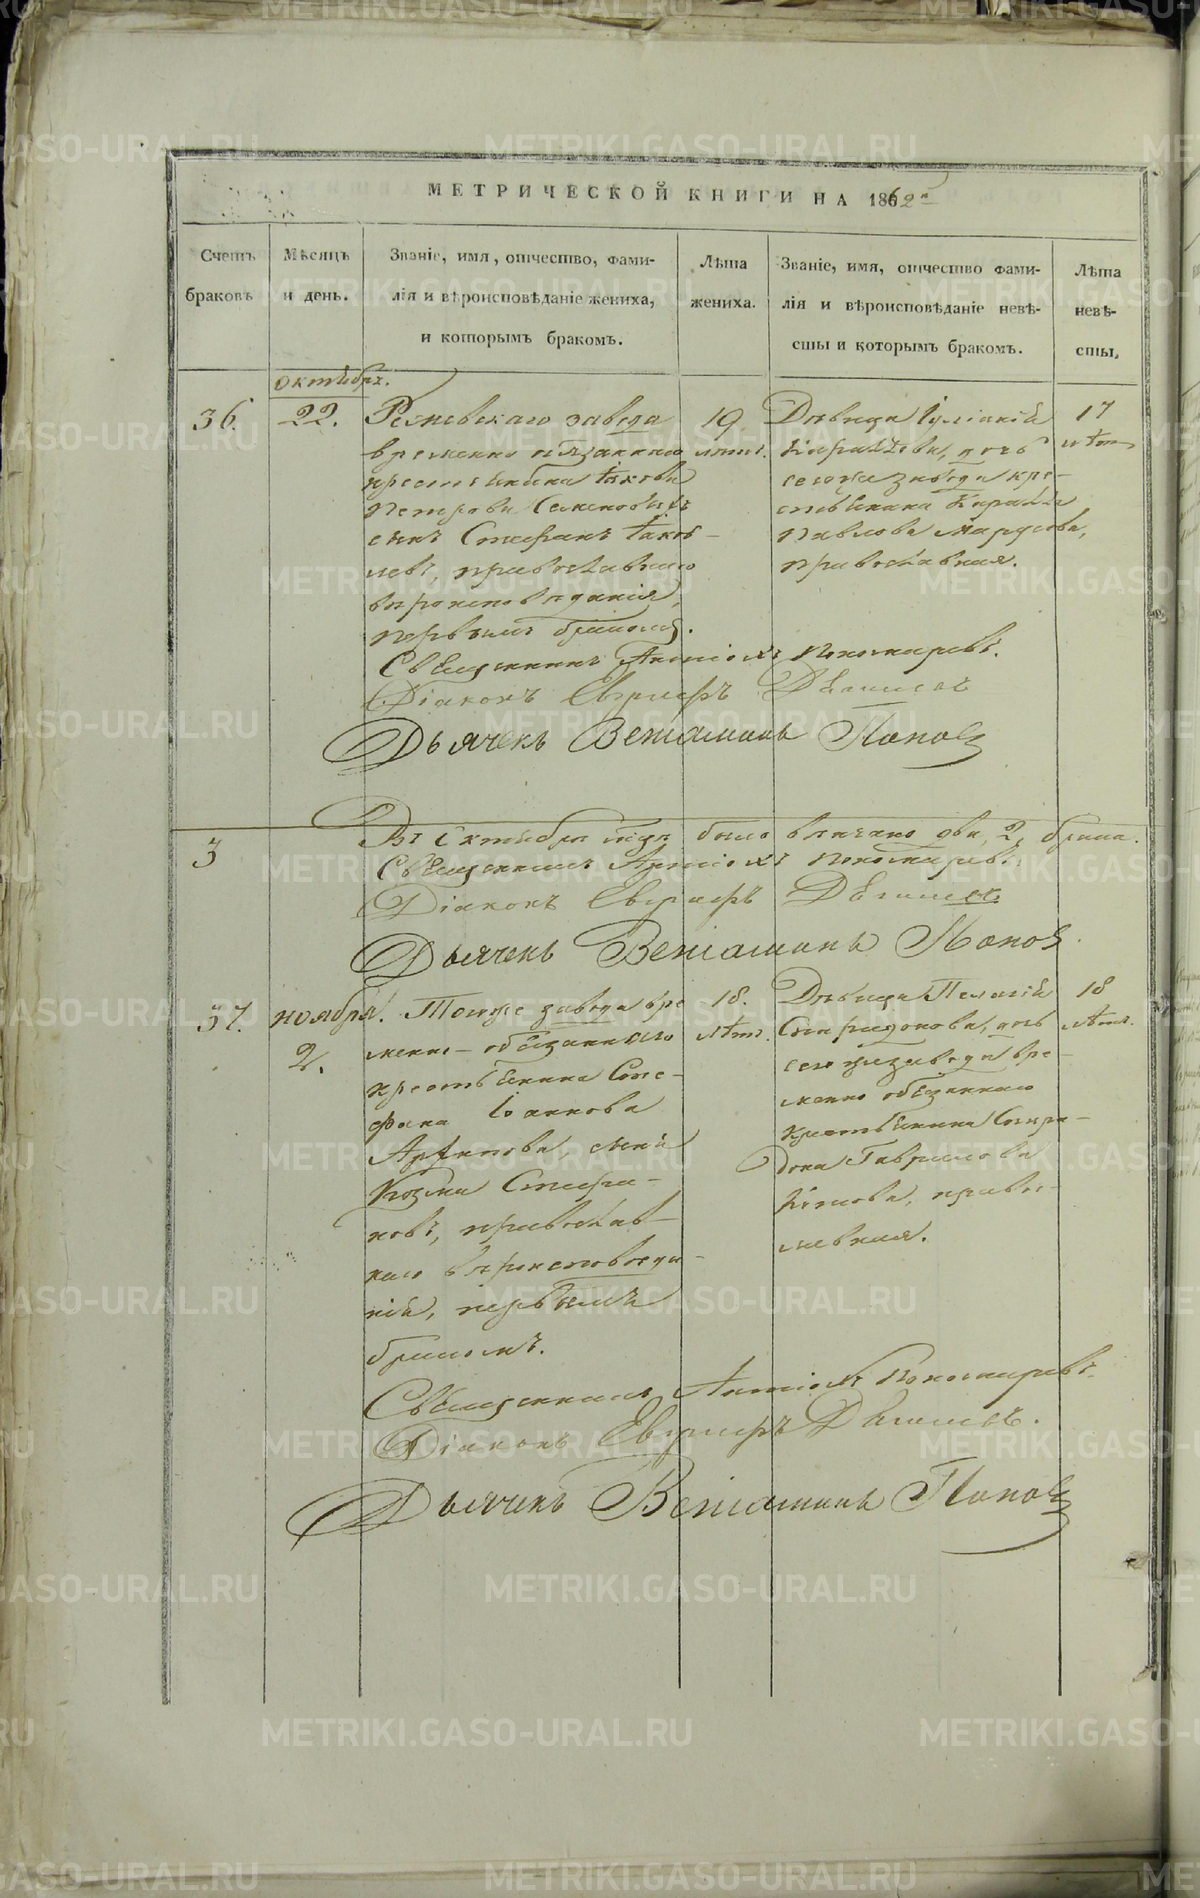 МЕТРИЧЕСКОЙ КНИГИ НА 1862 й
Счетъ браковъ
Мѣсяцъ и день.
Званіе, имя, отчество, фами-
лія и вѣроисповѣданіе жениха,
и которымъ бракомъ.
Лѣта
жениха.
Званіе, имя, отчество фами-
лія и вѣроисповѣданіе невѣ-
сты и которымъ бракомъ.
Лѣта
невѣ-
сты.
Октября.
36.
22.
завода
временно обязаннаго
крестьянина Іакова
Петрова Семеновыхъ
сынъ Стефанъ Іаков-
левъ, православнаго
вѣроисповѣданія,
первымъ бракомъ.
19
лѣтъ.
Дѣвица Іуліанія
дочь
сегоже завода кре-
стьянина
Павлова
православная.
17
лѣтъ
Священникъ Пономаревъ.
Діаконъ Евграфъ
Дьячекъ Веніаминъ Поповъ
3
Въ Октябрѣ м-цѣ было вѣнчано два, 2, брака.
Священникъ Пономаревъ.
Діаконъ Евграфъ
Дьячекъ Веніаминъ Поповъ.
37.
ноября.
2.
Тогоже завода вре
менно-обязаннаго
крестьянина Сте-
фана Іоаннова
Архипова, сынъ
Козма Стефа-
новъ, православ-
наго вѣроисповѣда-
нія, первымъ
бракомъ.
18.
лѣтъ.
Дѣвица Пелагія
Спиридонова, дочь
сегоже завода вре-
менно обязаннаго
крестьянина Спири-
дона Гаврилова
православная.
18
лѣтъ.
Священникъ Пономаревъ.
Діаконъ Евграфъ
Дьячекъ Веніаминъ Поповъ